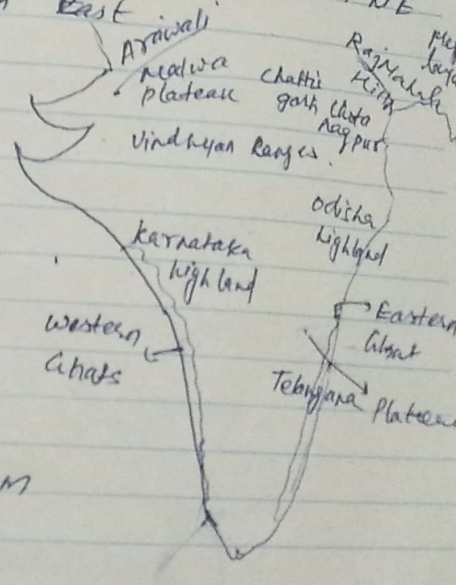 East
N E
Arawali
Malwa
Plateau
Chattis
garh
Chota
nagpur
Rajmahal
Hills
Vindhyan Ranges.
Odisha
highland
Karnataka
highland
Western
Ghats
Eastern
Ghat
Telangana Plateau
M